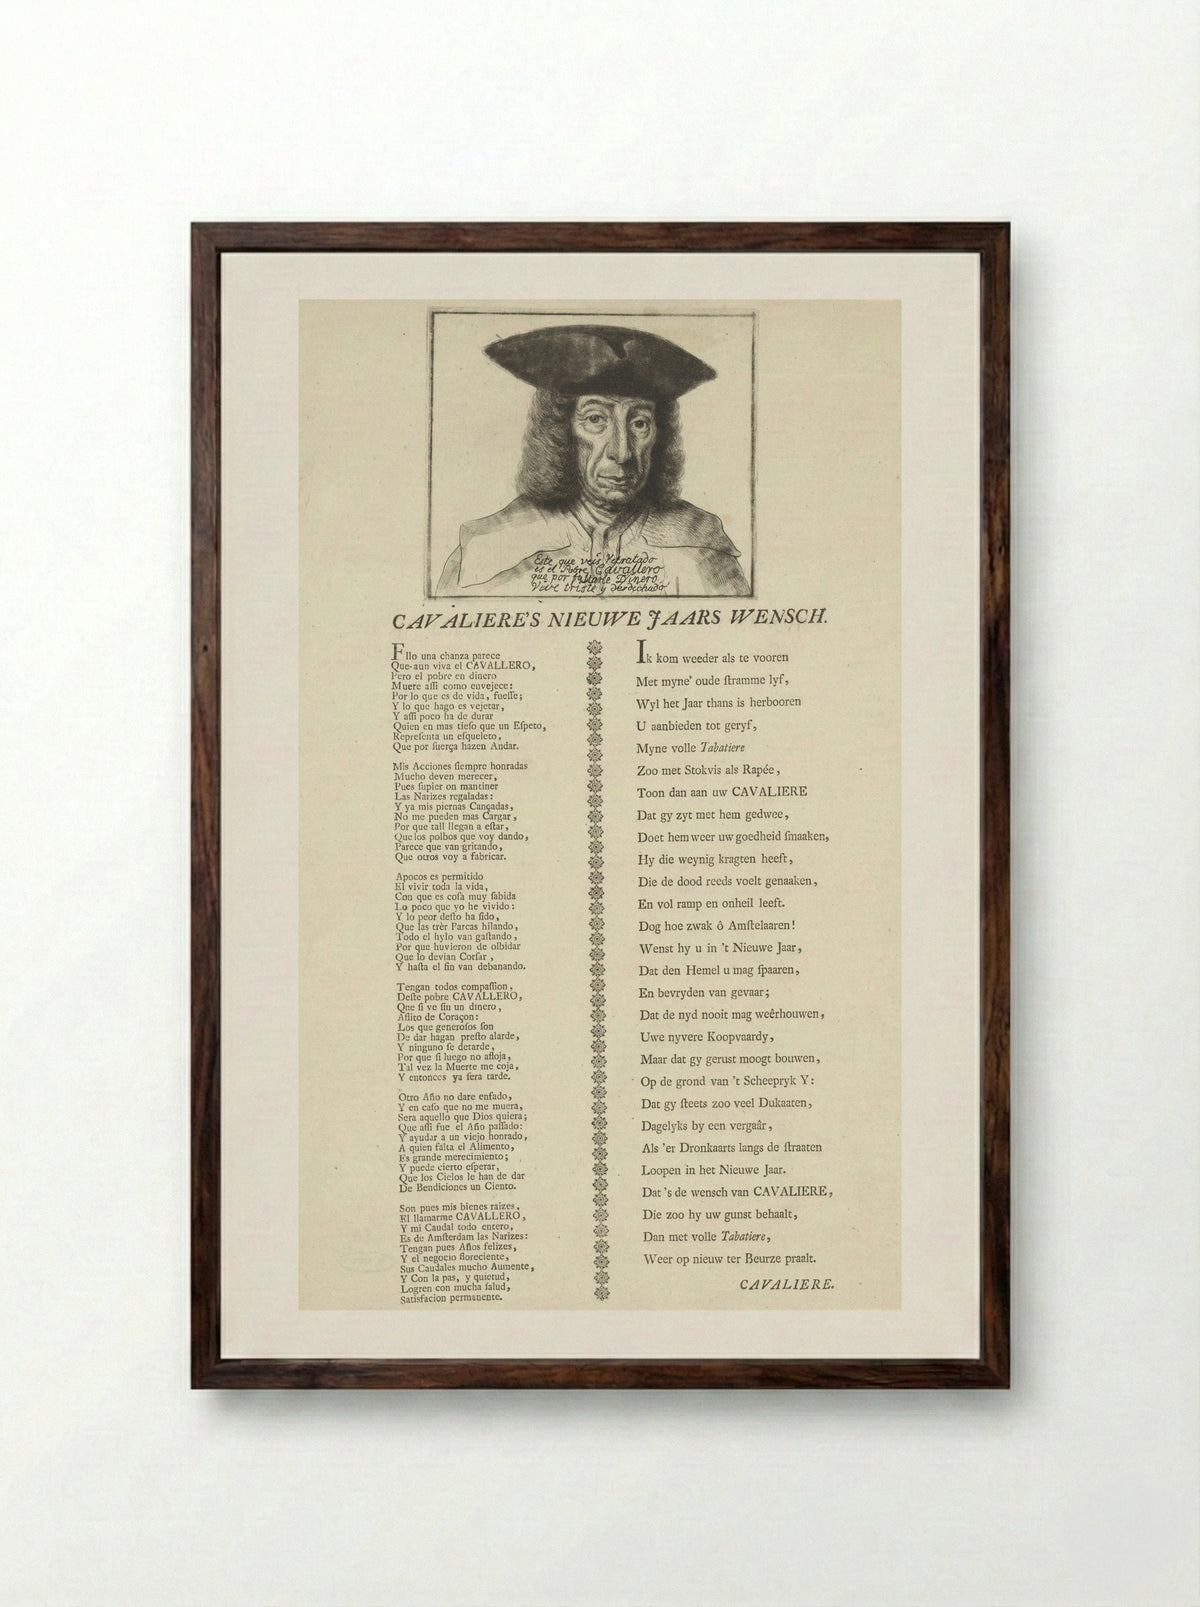 Este que veis Retratado
es el Pobre Cavallero
que por faltarle Dinero
Vive triste y desdichado
CAVALIERE'S NIEUWE JAARS WENSCH.
Ello una chanza parece
Que aun viva el CAVALLERO,
Pero el pobre en dinero
Muere aſſi como envejece:
Por lo que es de vida, fueſſe;
Y lo que hago es vejetar,
Y aſſi poco ha de durar
Quien en mas tieſo que un Eſpeto,
Repreſenta un eſqueleto,
Que por fuerça hazen Andar.
Mis Acciones ſiempre honradas
Mucho deven merecer,
Pues ſupier on mantiner
Las Narizes regaladas:
Y ya mis piernas Cançadas,
No me pueden mas Cargar,
Por que tall llegan a eſtar,
Que los polbos que voy dando,
Parece que van gritando,
Que otros voy a fabricar.
Apocos es permitido
El vivir toda la vida,
Con que es coſa muy ſabida
Lo poco que yo he vivido:
Y lo peor deſto ha ſido,
Que las trèr Parcas hilando,
Todo el hylo van gaſtando,
Por que huvieron de olbidar
Que lo devian Corſar,
Y haſta el fin van debanando.
Tengan todos compaſſion,
Deſte pobre CAVALLERO,
Que ſi ve ſiu un dinero,
Aflito de Coraçon:
Los que generoſos ſon
De dar hagan preſto alarde,
Y ninguno ſe detarde,
Por que ſi luego no afloja,
Tal vez la Muerte me coja,
Y entonces ya ſera tarde.
Otro Año no dare enfado,
Y en caſo que no me muera,
Sera aquello que Dios quiera;
Que aſſi fue el Año paſſado:
Y ayudar a un viejo honrado,
A quien falta el Alimento,
Es grande merecimiento;
Y puede cierto eſperar,
Que los Cielos le han de dar
De Bendiciones un Ciento.
Son pues mis bienes raizes,
El llamarme CAVALLERO,
Y mi Caudal todo entero,
Es de Amſterdam las Narizes:
Tengan pues Años felizes,
Y el negocio floreciente,
Sus Caudales mucho Aumente,
Y Con la pas, y quietud,
Logren con mucha ſalud,
Satisfacion permanente.
Ik kom weeder als te vooren
Met myne' oude ſtramme lyf,
Wyl het Jaar thans is herbooren
U aanbieden tot geryf,
Myne volle Tabatiere
Zoo met Stokvis als Rapée,
Toon dan aan uw CAVALIERE
Dat gy zyt met hem gedwee,
Doet hem weer uw goedheid ſmaaken,
Hy die weynig kragten heeft,
Die de dood reeds voelt genaaken,
En vol ramp en onheil leeft.
Dog hoe zwak ô Amſtelaaren!
Wenst hy u in 't Nieuwe Jaar,
Dat den Hemel u mag ſpaaren,
En bevryden van gevaar;
Dat de nyd nooit mag weêrhouwen,
Uwe nyvere Koopvaardy,
Maar dat gy gerust moogt bouwen,
Op de grond van 't Scheepryk Y:
Dat gy ſteets zoo veel Dukaaten,
Dagelyks by een vergaâr,
Als 'er Dronkaarts langs de ſtraaten
Loopen in het Nieuwe Jaar.
Dat 's de wensch van CAVALIERE,
Die zoo hy uw gunst behaalt,
Dan met volle Tabatiere,
Weer op nieuw ter Beurze praalt.
CAVALIERE.